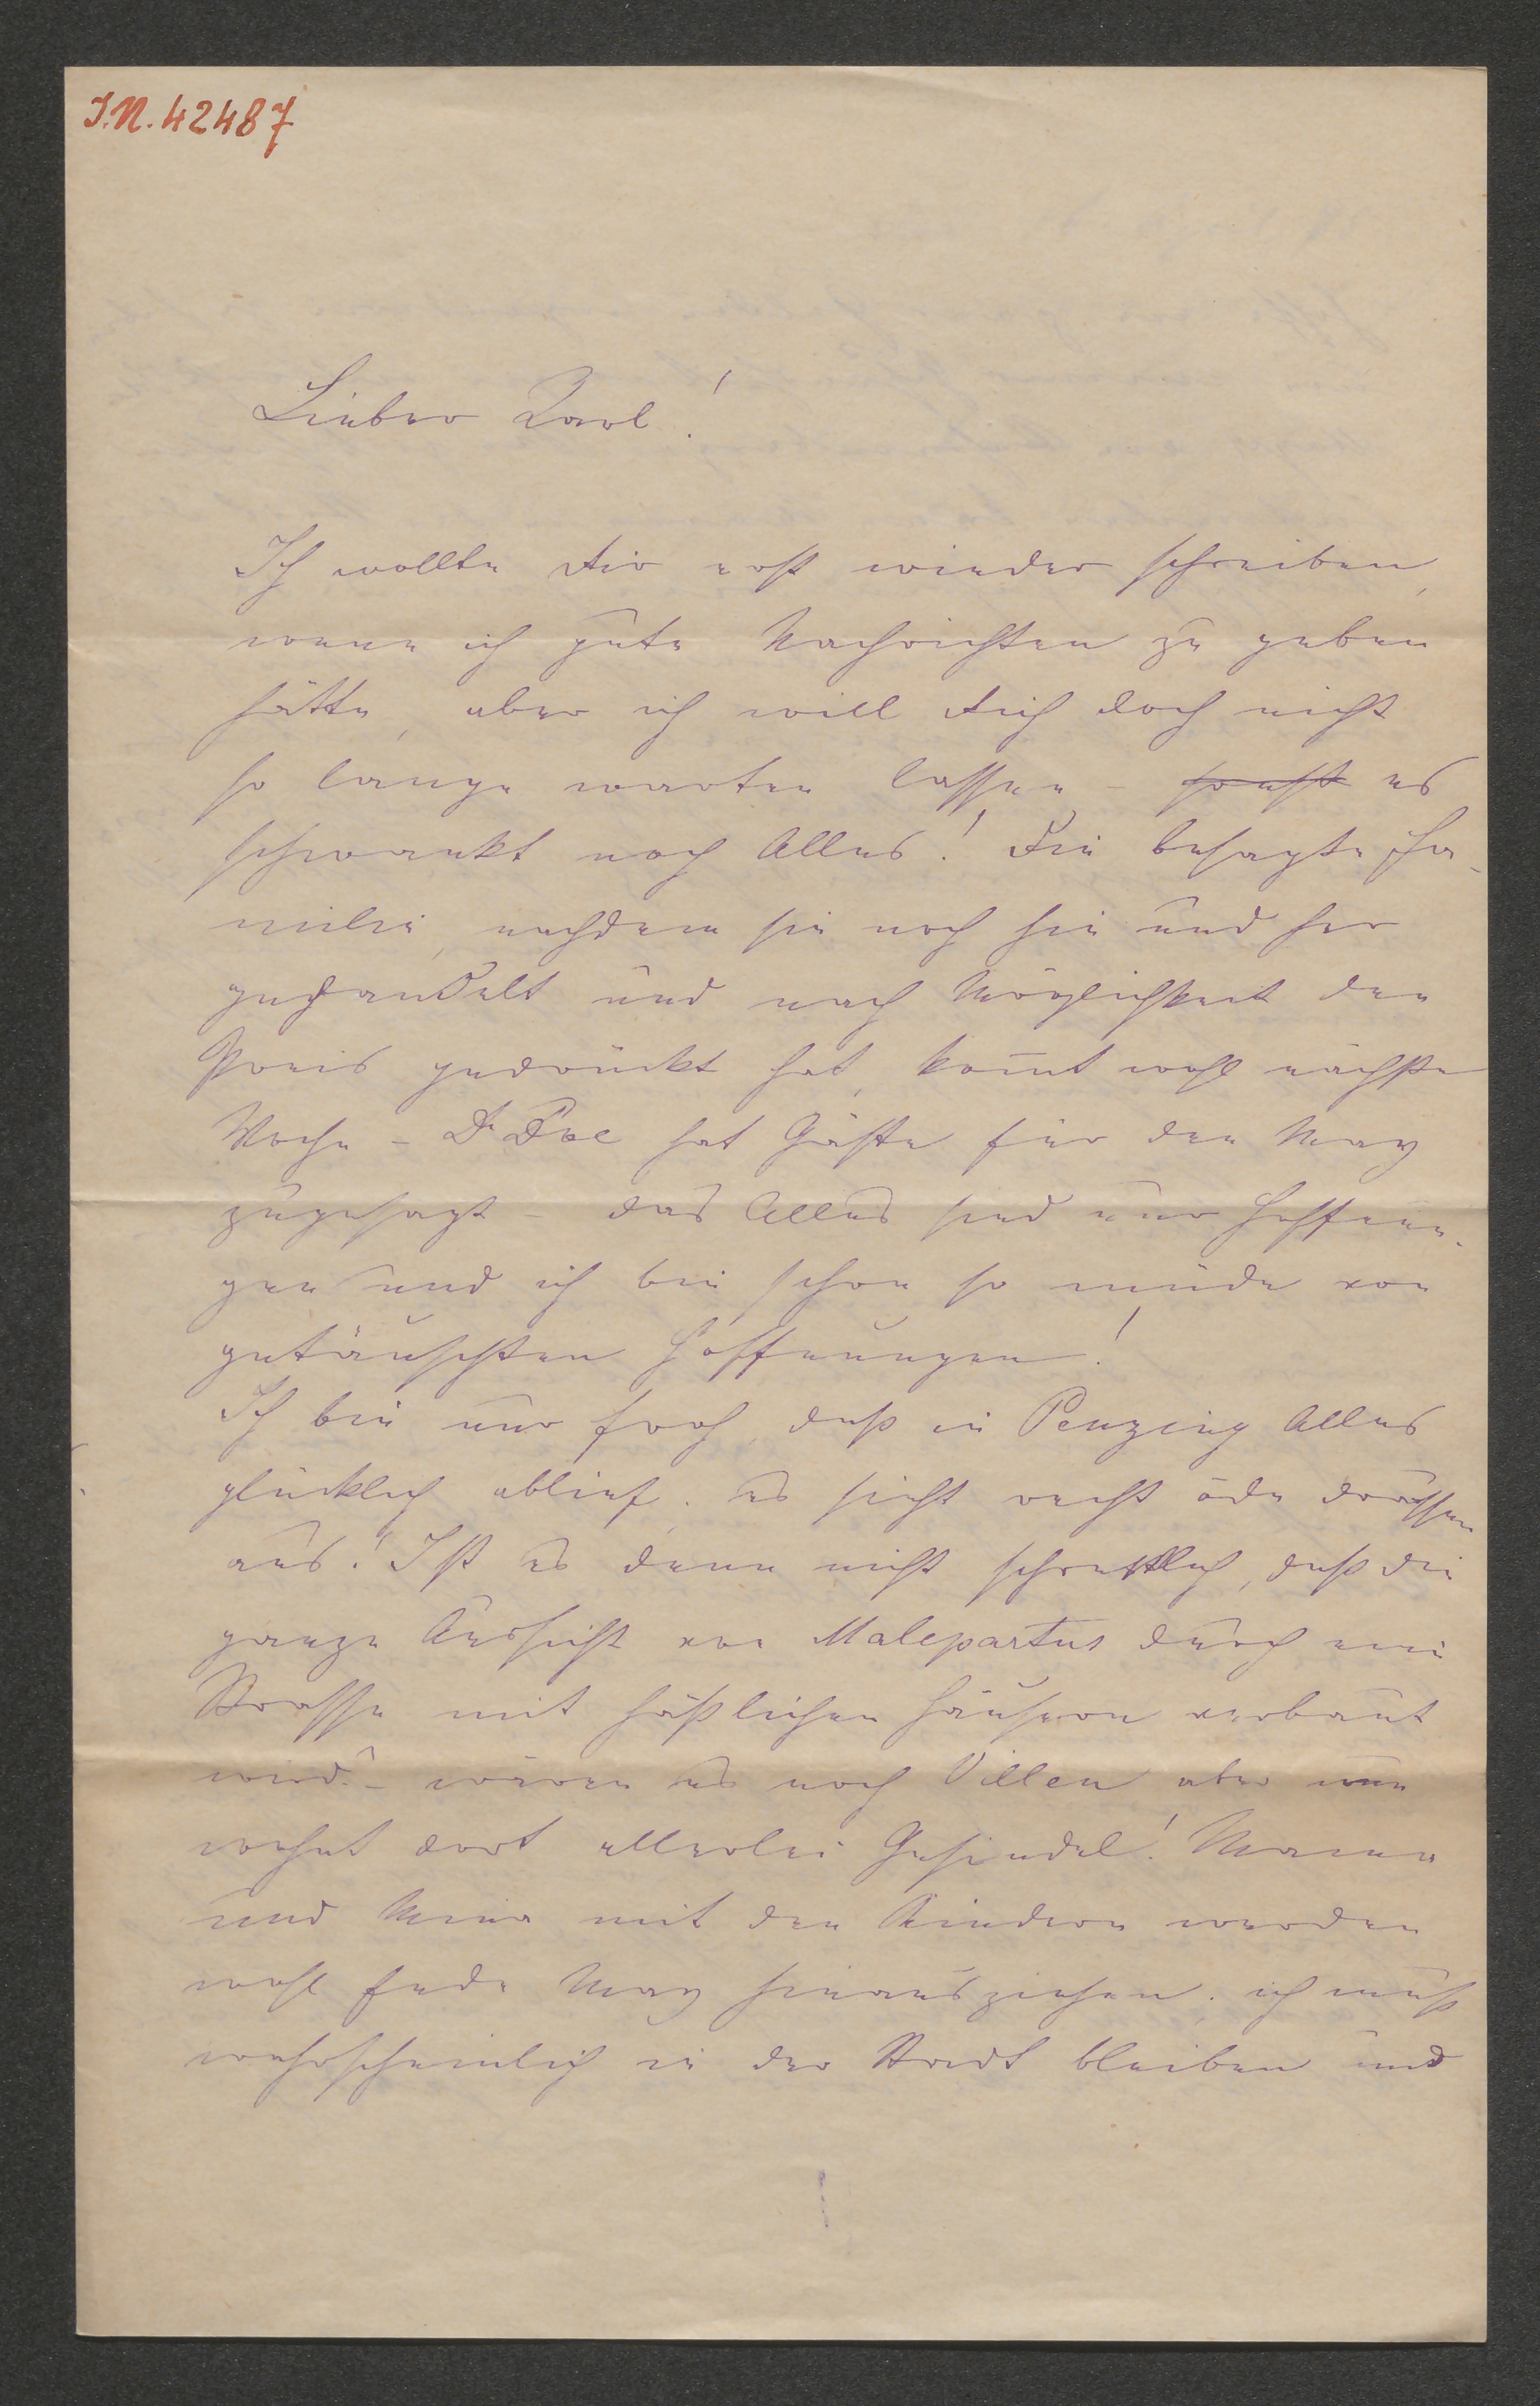 I.N. 42487
Lieber Karl!
Ich wollte Dir erst wieder schreiben,
wenn ich gute Nachrichten zu geben
hätte, aber ich will Dich doch nicht
so lange warten lassen – sonst es
schwankt noch Alles! Die besagte Fa-
milie, nachdem sie noch hin und her
gehandelt und nach Möglichkeit den
Preis gedrückt hat, kom̄t wohl nächste
Woche – Dr hat Gäste für den May
zugesagt – das Alles sind nur Hoffnun-
gen und ich bin schon so müde von
getäuschten Hoffnungen!
Ich bin nur froh, daß in Penzing Alles
glücklich ablief, es sieht recht öde draussen
aus! Ist es denn nicht schrecklich, daß die
ganze Aussicht von Malepartus durch eine
Strasse mit häßlichen Häusern verbaut
wird? – wären es noch Villen aber nun
wohnt dort allerlei Gesindel! Mama
und Mina mit den Kindern werden
wohl Ende May hinausziehen, ich muß
wahrscheinlich in der Stadt bleiben und